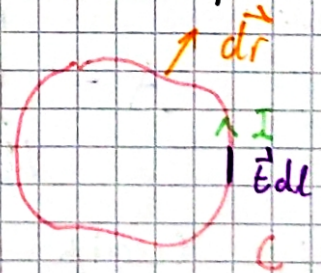 d\vec{r}
I
\vec{t}dl
C